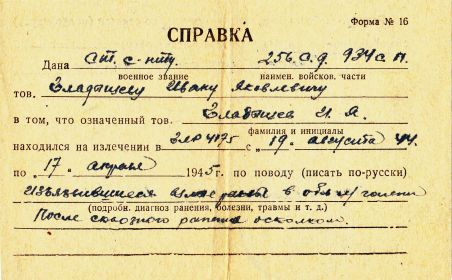 Форма № 16
СПРАВКА
Дана Ст. с-нту 256 с.д. 934 с.п.
военное звание наимен. войсков. части
тов. Ивану Яковлевичу
в том, что означенный тов. И. Я.
фамилия и инициалы
находился на излечении в 4175 с "19" августа 44.
по "17" апреля 1945 г. по поводу (писать по-русски)
в обл.
(подробн. диагноз ранения, болезни, травмы и т. д.)
После сквозного ранения осколком.